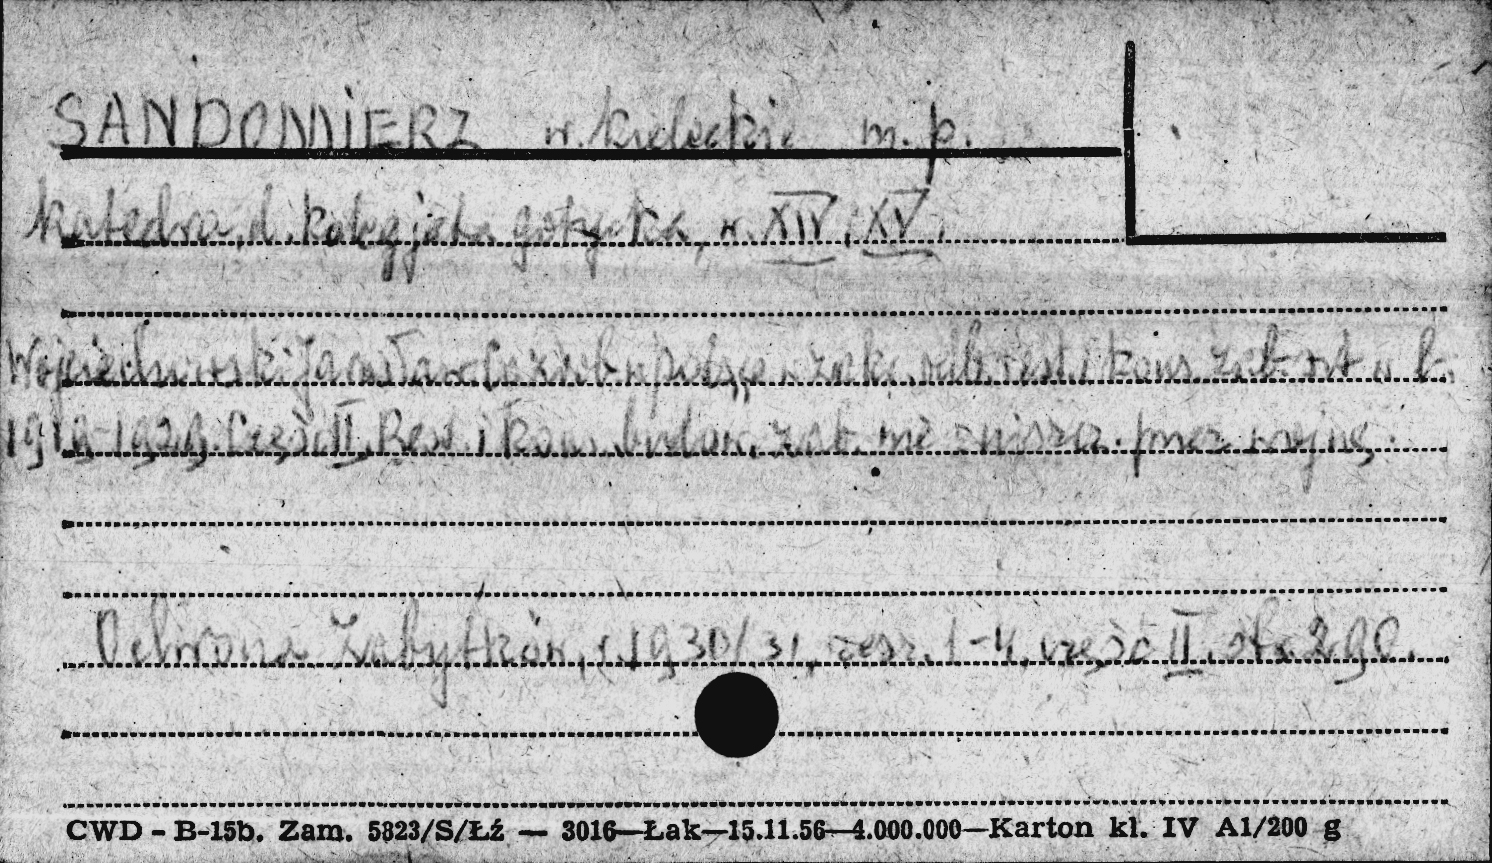 SANDOMIERZ w. kieleckie m. p.
Katedra, d. kolegjata gotycka, w. XIV, XV.
Wojciechowski Jarosław Dzieła w zakr. odb. rest. i kons. zab. szt. w l.
1919-1929. Część II. Rest. i kons. budow. zab. nie zniszcz. przez wojnę.
Ochrona Zabytków, r. 1930/31, zesz. 1-4, część II. str. 290.
CWD - B-15b. Zam. 5823/S/Łź — 3016—Łak—15.11.56—4.000.000—Karton kl. IV A1/200 g